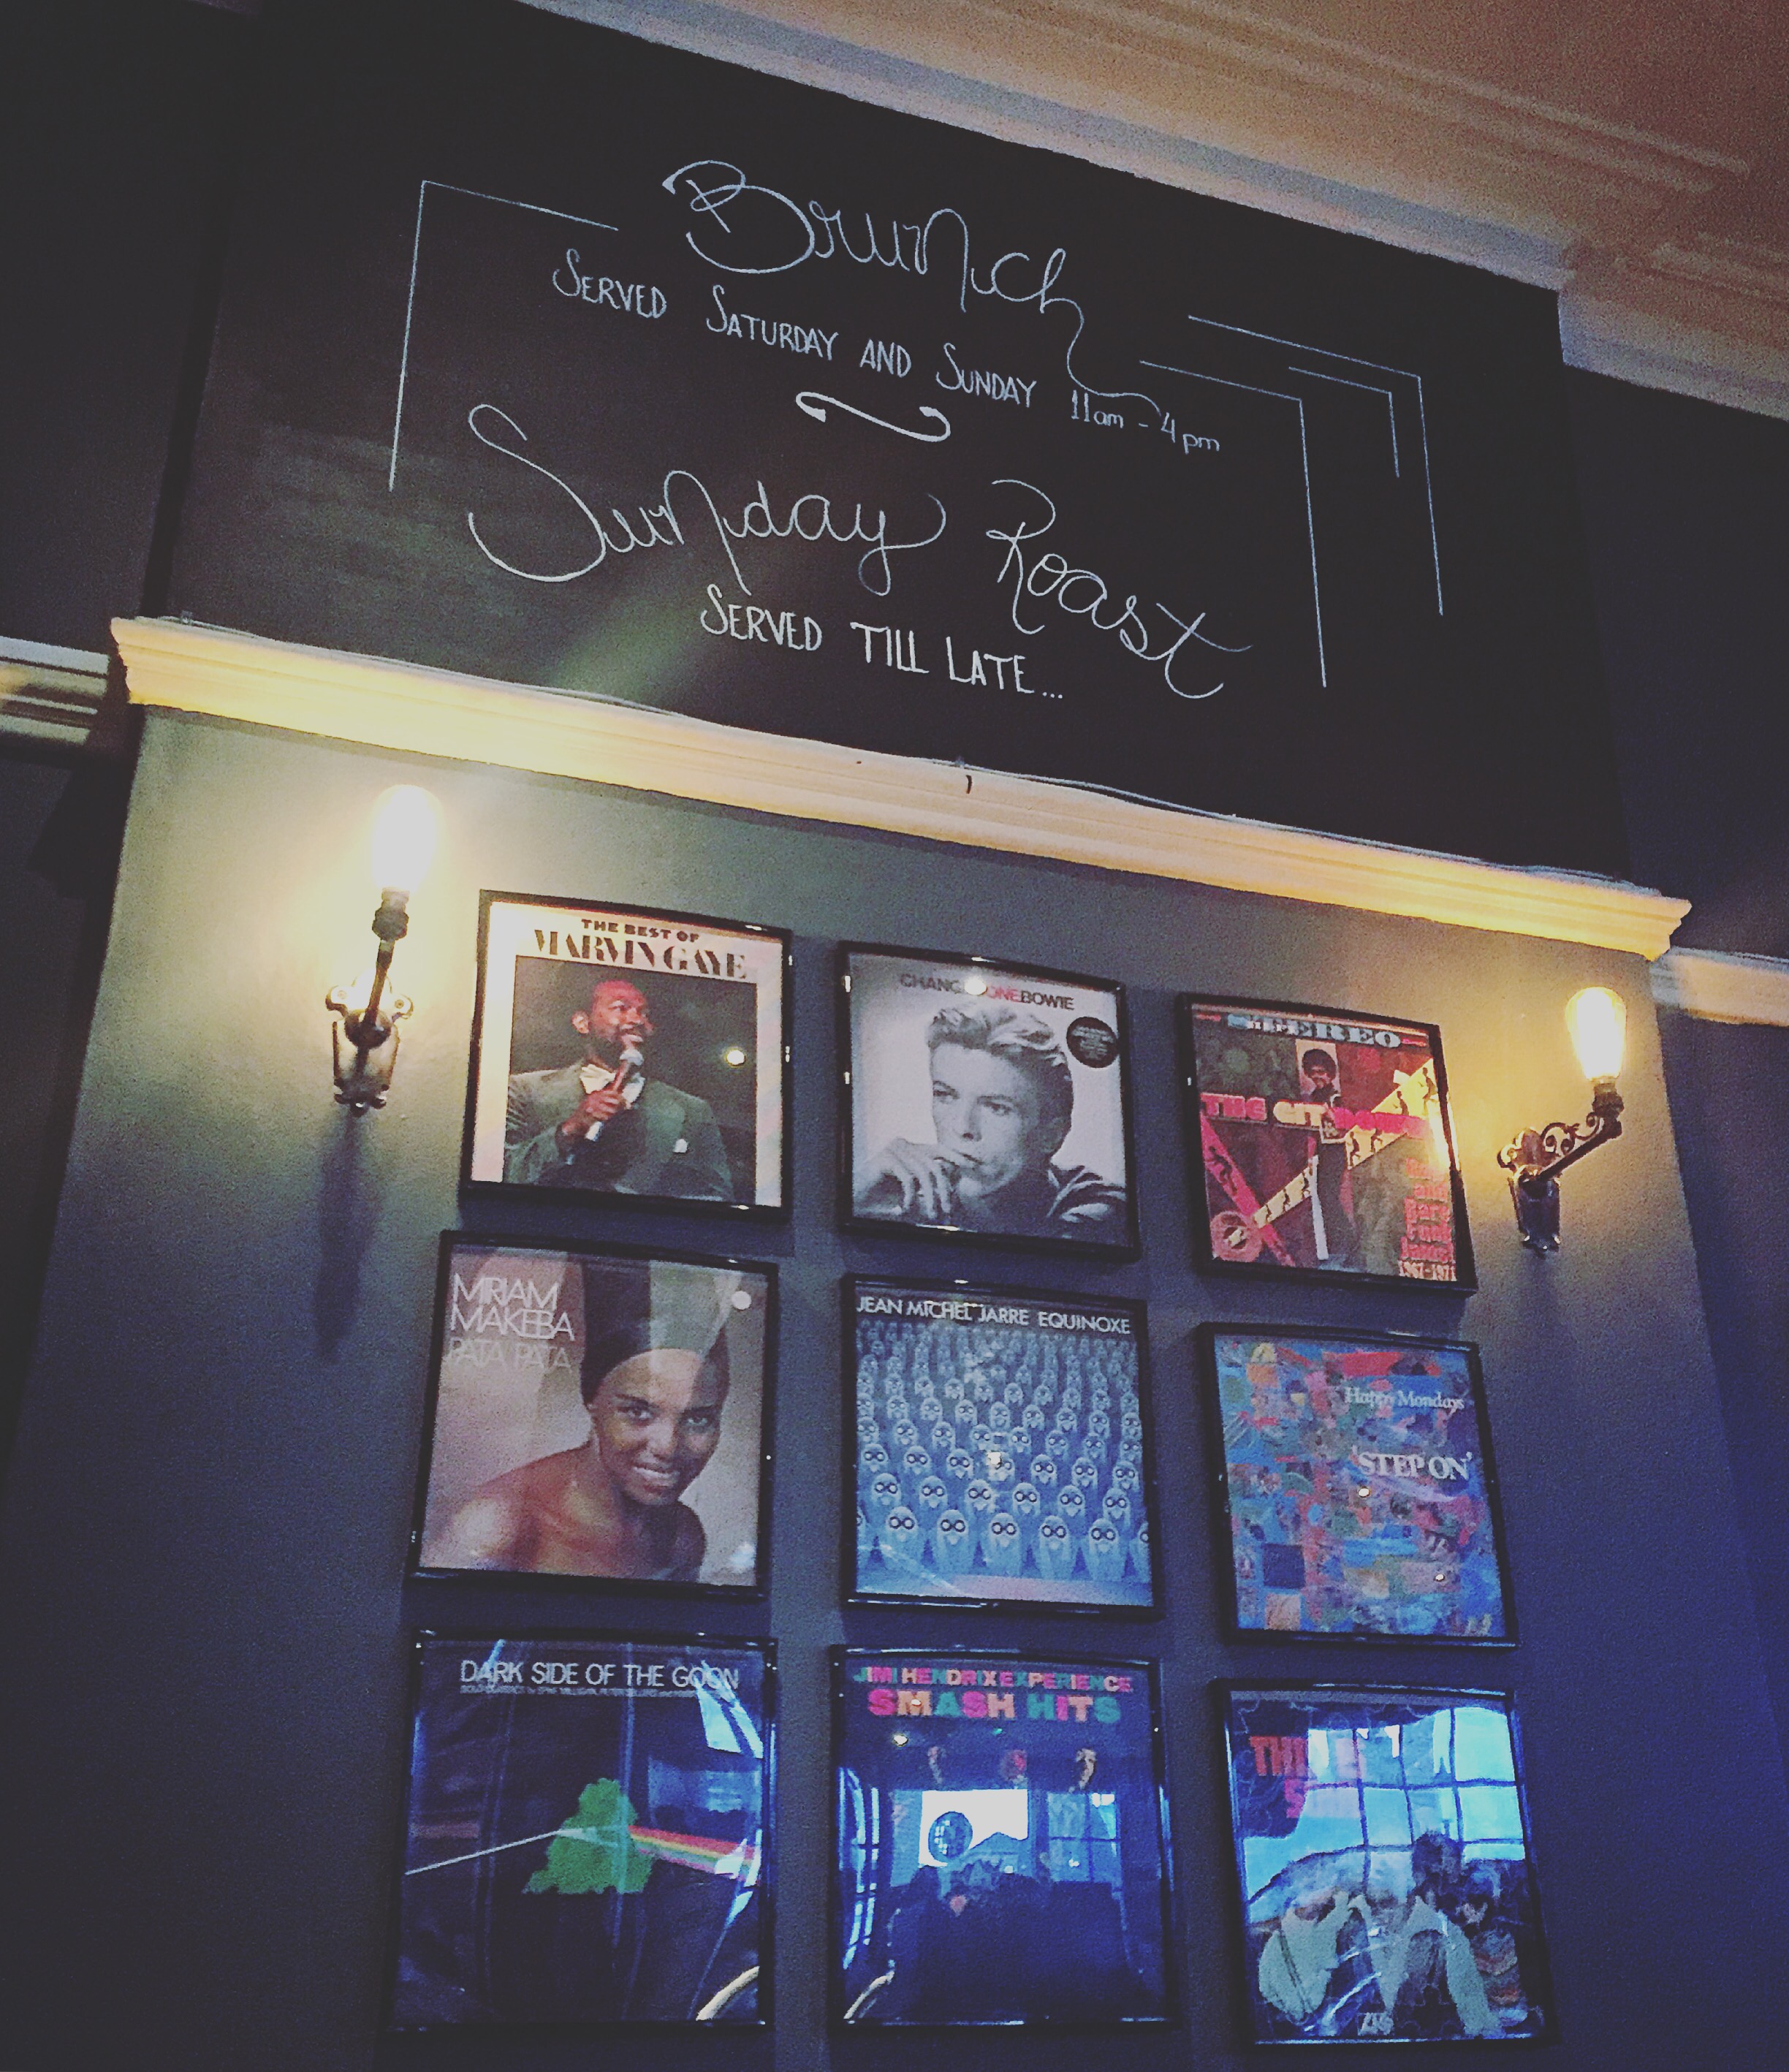 Brunch
SERVED SATURDAY AND SUNDAY 11am - 4pm
Sunday Roast
SERVED TILL LATE...
THE BEST OF
MARVIN GAYE
CHANGESONEBOWIE
STEREO
THE GIT DOWN
1967-1971
MIRIAM
MAKEBA
PATA PATA
JEAN MICHEL JARRE EQUINOXE
Happy Mondays
'STEP ON'
DARK SIDE OF THE GOON
JIMI HENDRIX EXPERIENCE
SMASH HITS